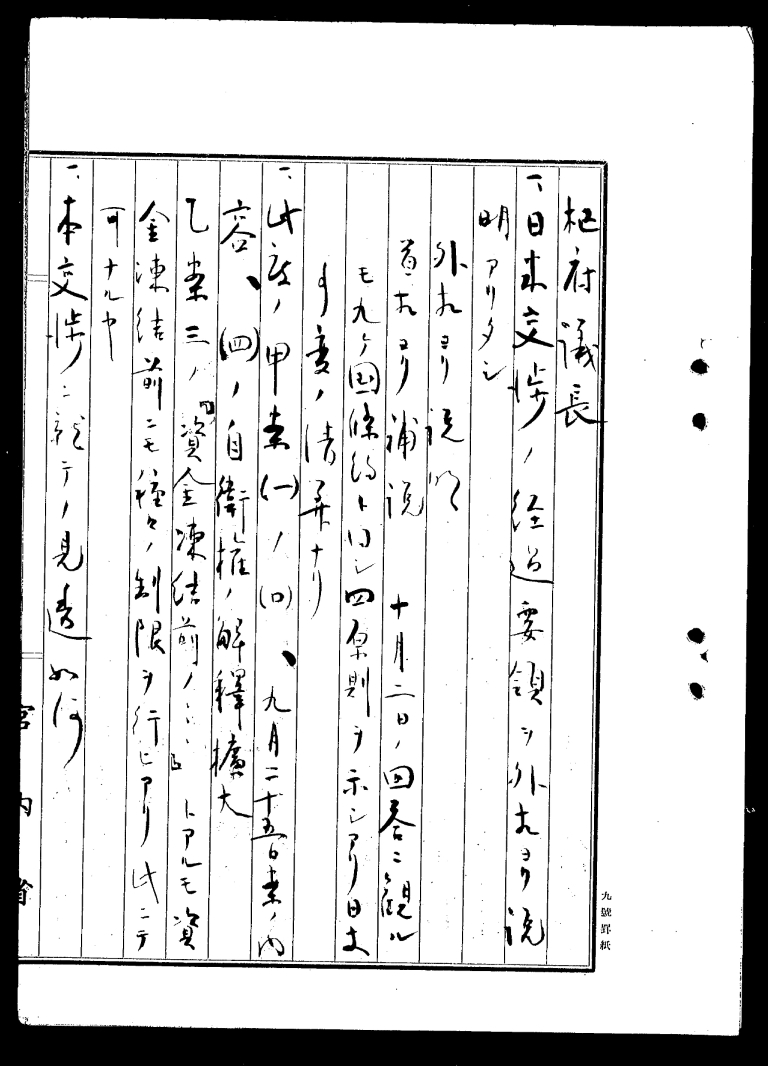 枢府議長
一、日米交渉ノ経過要領ヲ外相ヨリ説
明アリタシ
外相ヨリ説明
首相ヨリ補説　十月二日ノ回答ニ観ル
モ九ケ国條約ト同シ四原則ヲ示シアリ日支
事変ノ清算ナリ
一、此度ノ甲案(一)ノ(ロ)、九月二十五日案ノ内
容、(四)ノ自衛権ノ解釋擴大
乙案三ノ「資金凍結前ノ……」トアルモ資
金凍結前ニモ種々ノ制限ヲ行ヒアリ此ニテ
可ナルヤ
一、本交渉ニ就テノ見透如何
宮内省
九號罫紙